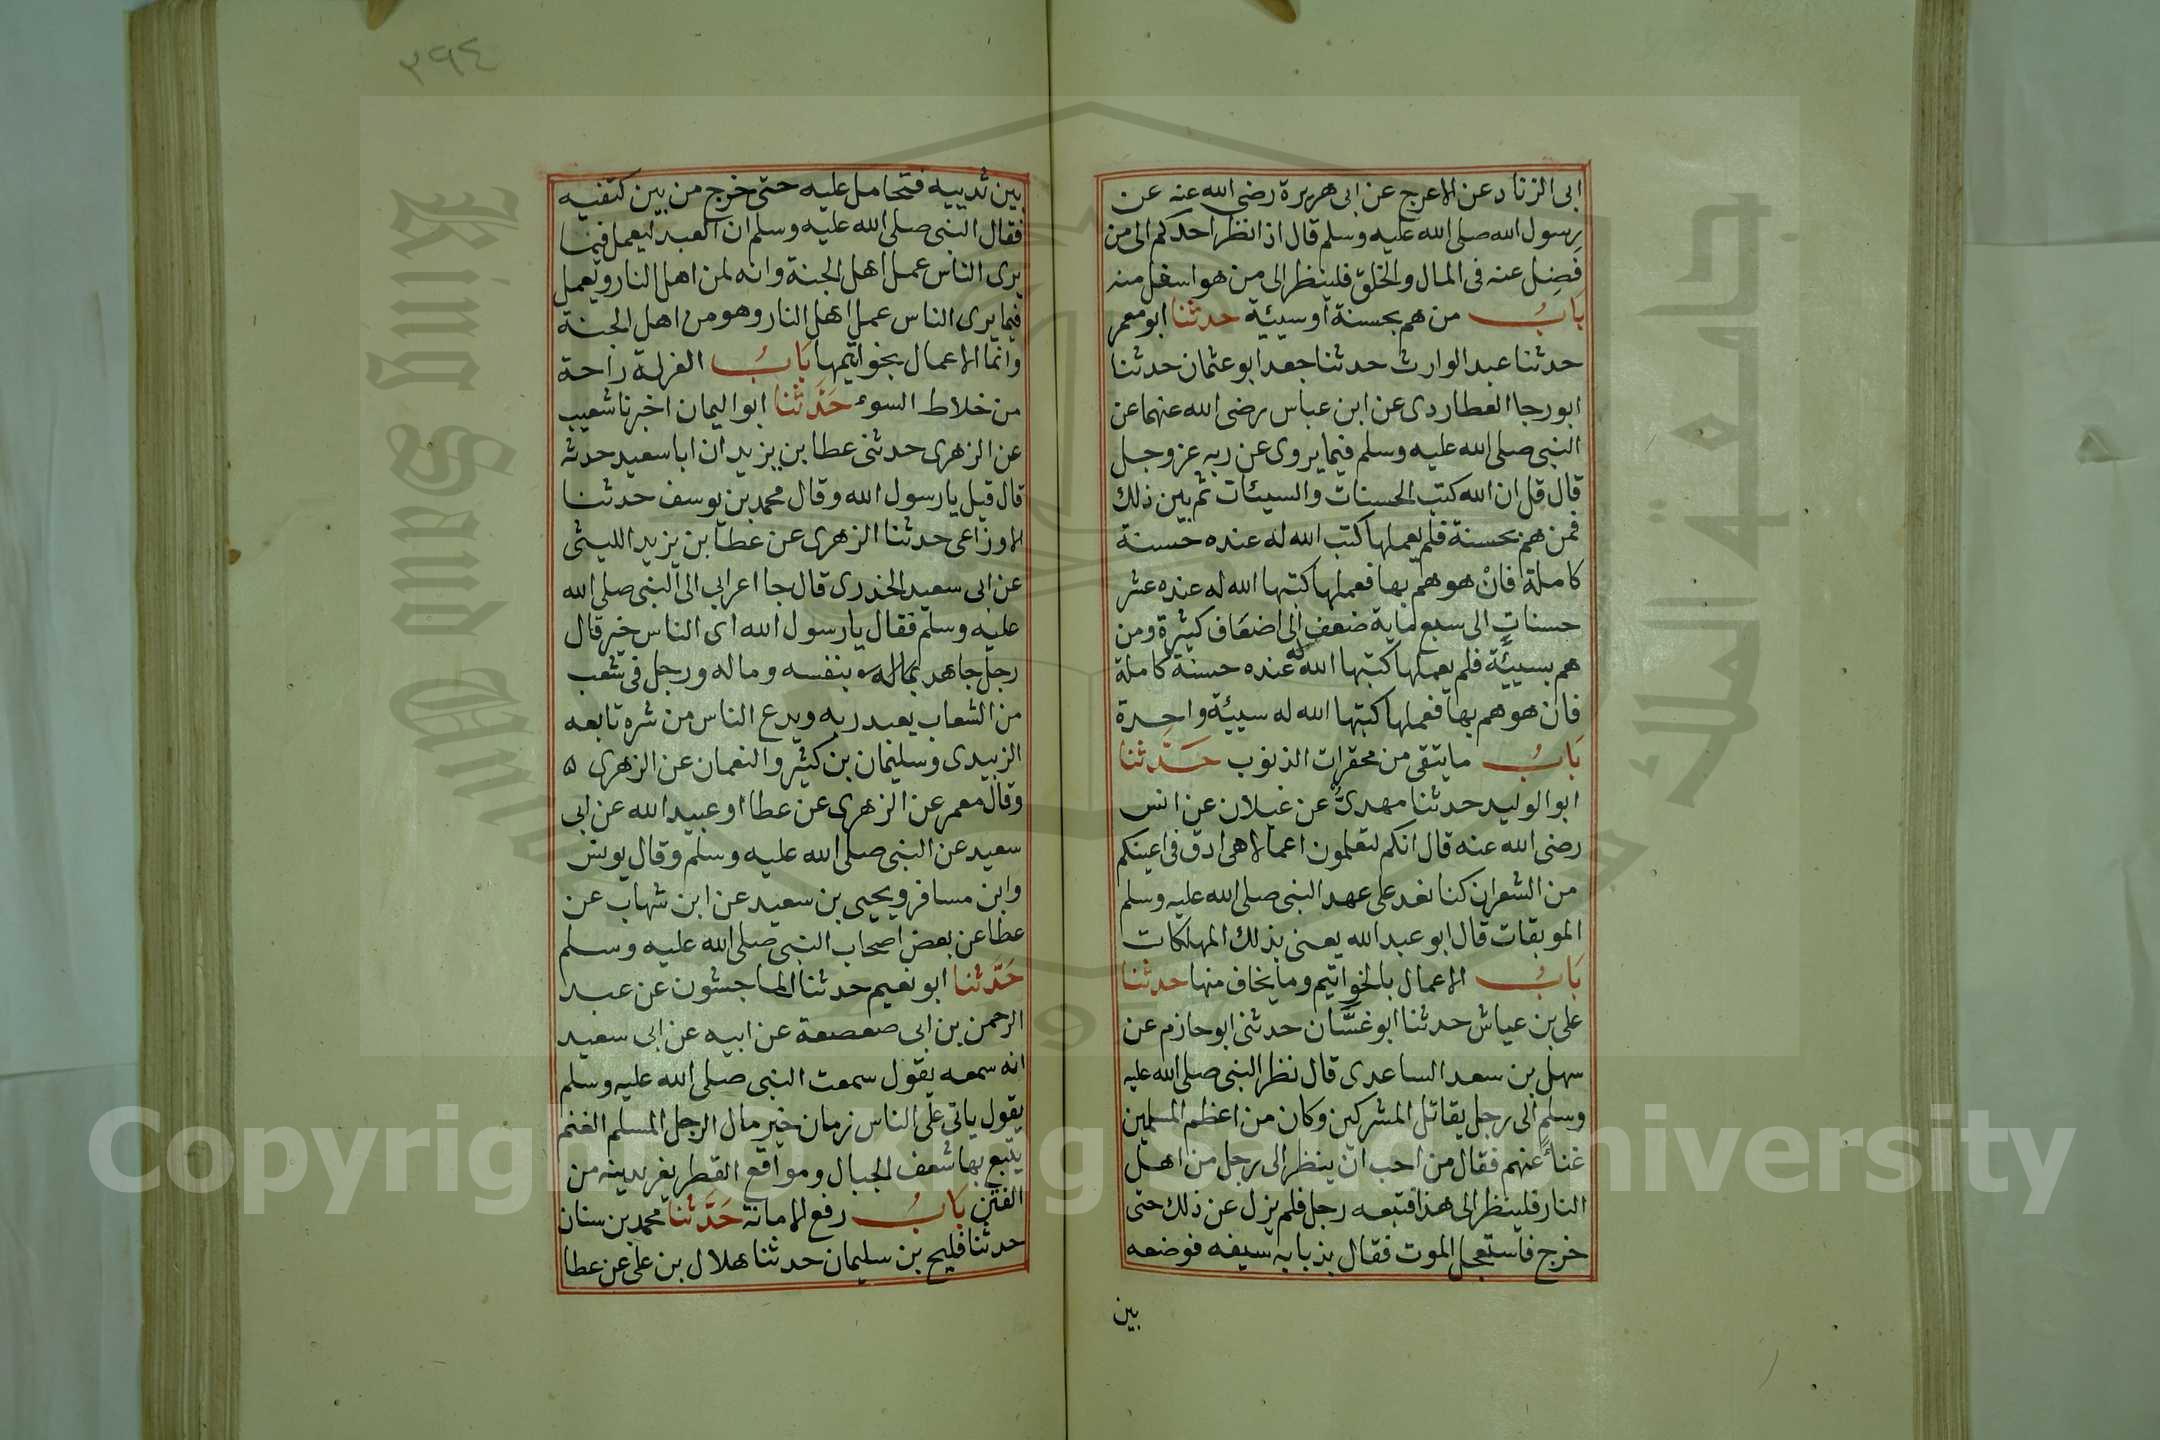 ابى الزناد عن الاعرج عن ابى هريرة رضى الله عنه عن
رسول الله صلى الله عليه وسلم قال اذا نظر احدكم الى من
فضل عنه فى المال والخلق فلينظر الى من هو اسفل منه
باب من هم بحسنة أو سيئة حدثنا ابو معمر
حدثنا عبد الوارث حدثنا جعد ابو عثمان حدثنا
ابو رجا العطاردى عن ابن عباس رضى الله عنهما عن
النبى صلى الله عليه وسلم فيما يروى عن ربه عز وجل
قال قل ان الله كتب الحسنات والسيئات ثم بين ذلك
فمن هم بحسنة فلم يعملها كتب الله له عنده حسنة
كاملة فان هو هم بها فعملها كتبها الله له عنده عشر
حسنات الى سبع ماية ضعف الى اضعاف كثيرة ومن
هم بسيئة فلم يعملها كتبها الله له عنده حسنة كاملة
فان هو هم بها فعملها كتبها الله له سيئة واحدة
باب ما يتقى من محقرات الذنوب حدثنا
ابو الوليد حدثنا مهدى عن غيلان عن انس
رضى الله عنه قال انكم لتعلمون اعمالا هى ادق فى اعينكم
من الشعر ان كنا نعد على عهد النبى صلى الله عليه وسلم
الموبقات قال ابو عبد الله يعنى بذلك المهلكات
باب الاعمال بالخواتيم وما يخاف منها حدثنا
على بن عياش حدثنا ابو غسان حدثنى ابو حازم عن
سهل بن سعد الساعدى قال نظر النبى صلى الله عليه
وسلم الى رجل يقاتل المشركين وكان من اعظم المسلمين
غناء عنهم فقال من احب ان ينظر الى رجل من اهل
النار فلينظر الى هذا فتبعه رجل فلم يزل عن ذلك حتى
خرج فاستعجل الموت فقال بذبابه سيفه فوضعه
بين
٣٩٤
بين ثدييه فتحامل عليه حتى خرج من بين كتفيه
فقال النبى صلى الله عليه وسلم ان العبد ليعمل فيما
يرى الناس عمل اهل الجنة وانه لمن اهل النار ويعمل
فيما يرى الناس عمل اهل النار وهو من اهل الجنة
وانما الاعمال بخواتيمها باب العزلة راحة
من خلاط السوء حدثنا ابو اليمان اخبرنا شعيب
عن الزهرى حدثنى عطا بن يزيد ان ابا سعيد حدثه
قال قيل يا رسول الله وقال محمد بن يوسف حدثنا
الاوزاعى حدثنا الزهرى عن عطا بن يزيد الليثى
عن ابى سعيد الخدرى قال جا اعرابي الى النبى صلى الله
عليه وسلم فقال يا رسول الله اى الناس خير قال
رجل جاهد بنفسه وماله ورجل فى شعب
من الشعاب يعبد ربه ويدع الناس من شره تابعه
الزبيدى وسليمان بن كثير والنعمان عن الزهرى ٥
وقال معمر عن الزهرى عن عطا او عبيد الله عن ابى
سعيد عن النبى صلى الله عليه وسلم وقال يونس
وابن مسافر ويحيى بن سعيد عن ابن شهاب عن
عطا عن بعض اصحاب النبى صلى الله عليه وسلم
حدثنا ابو نعيم حدثنا الماجشون عن عبد
الرحمن بن ابى صعصعة عن ابيه عن ابى سعيد
انه سمعه يقول سمعت النبى صلى الله عليه وسلم
يقول ياتى على الناس زمان خير مال الرجل المسلم الغنم
يتبع بها شعف الجبال ومواقع القطر يفر بدينه من
الفتن باب رفع الامانة حدثنا محمد بن سنان
حدثنا فليح بن سليمان حدثنا هلال بن على عن عطا
King Saud University
جامعة الملك سعود
Copyright © King Saud University